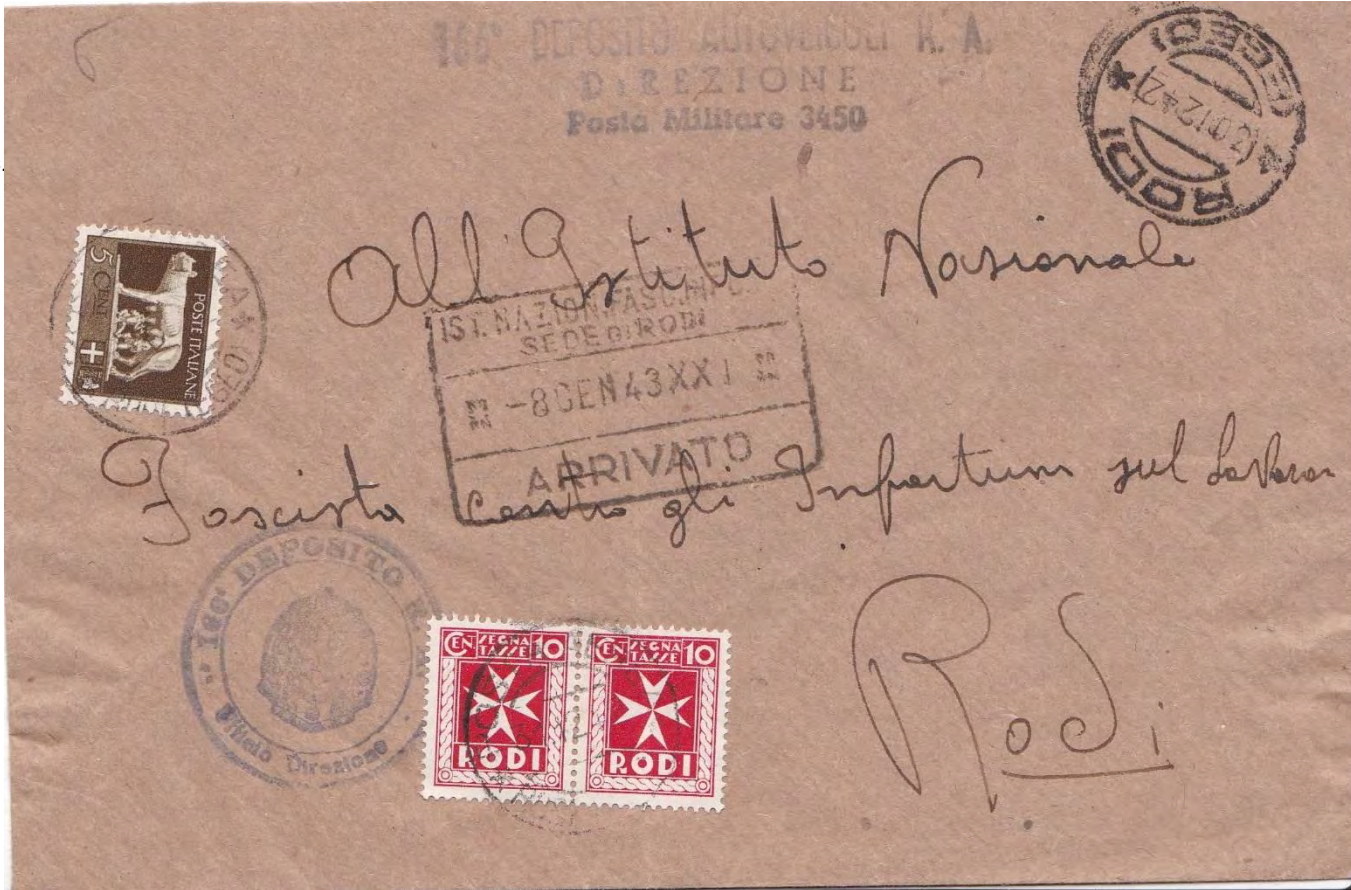 166° DEPOSITO AUTOVEICOLI R. A.
DIREZIONE
Posta Militare 3450
RODI
(EGEO)
All'Istituto Nazionale
POSTE ITALIANE
5 CENT
IST. NAZION. FASC.
SEDE DI RODI
-8 GEN 43 XXI
ARRIVATO
Fascista contro gli Infortuni sul Lavoro
166° DEPOSITO
Ufficio Direzione
CEN SEGNA TASSE 10
RODI
CEN SEGNA TASSE 10
RODI
Rodi